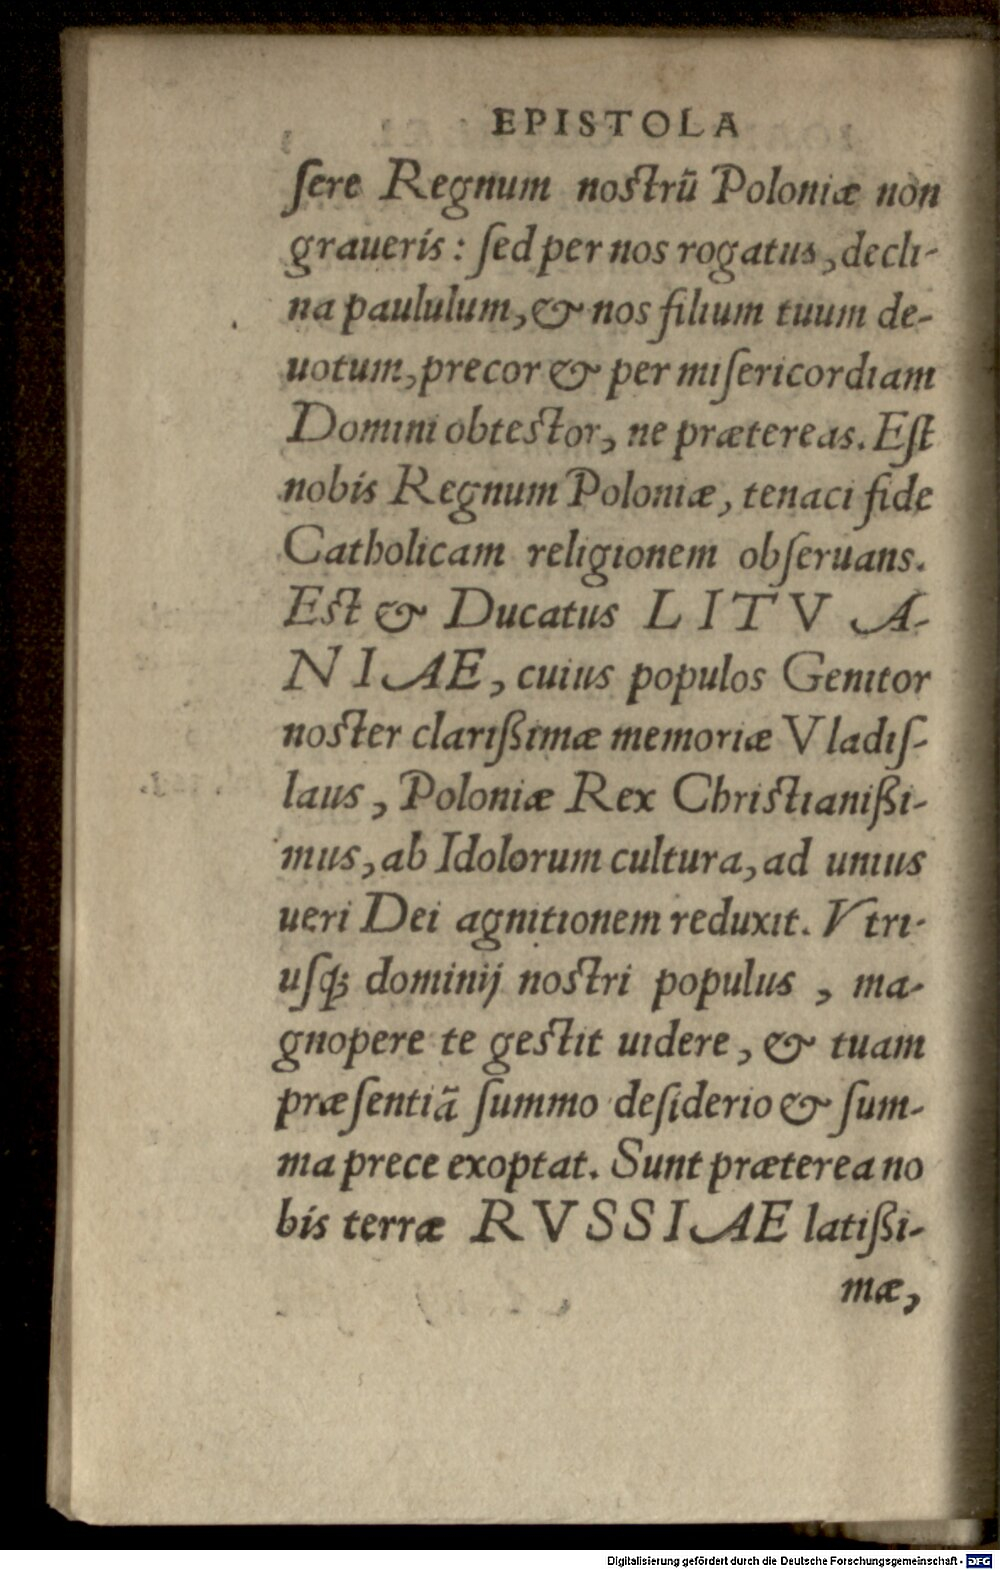 EPISTOLA
ſere Regnum noſtrū Poloniæ non
graueris: ſed per nos rogatus, decli-
na paululum, & nos filium tuum de-
uotum, precor & per miſericordiam
Domini obteſtor, ne prætereas. Eſt
nobis Regnum Poloniæ, tenaci fide
Catholicam religionem obſeruans.
Eſt & Ducatus LITVA-
NIAE, cuius populos Genitor
noſter clarißimæ memoriæ Vladiſ-
laus, Poloniæ Rex Chriſtianißi-
mus, ab Idolorum cultura, ad unius
ueri Dei agnitionem reduxit. Vtri-
uſq; dominij noſtri populus, ma-
gnopere te geſtit uidere, & tuam
præſentiā ſummo deſiderio & ſum-
ma prece exoptat. Sunt præterea no
bis terræ RVSSIAE latißi-
mæ,
Digitalisierung gefördert durch die Deutsche Forschungsgemeinschaft - DFG